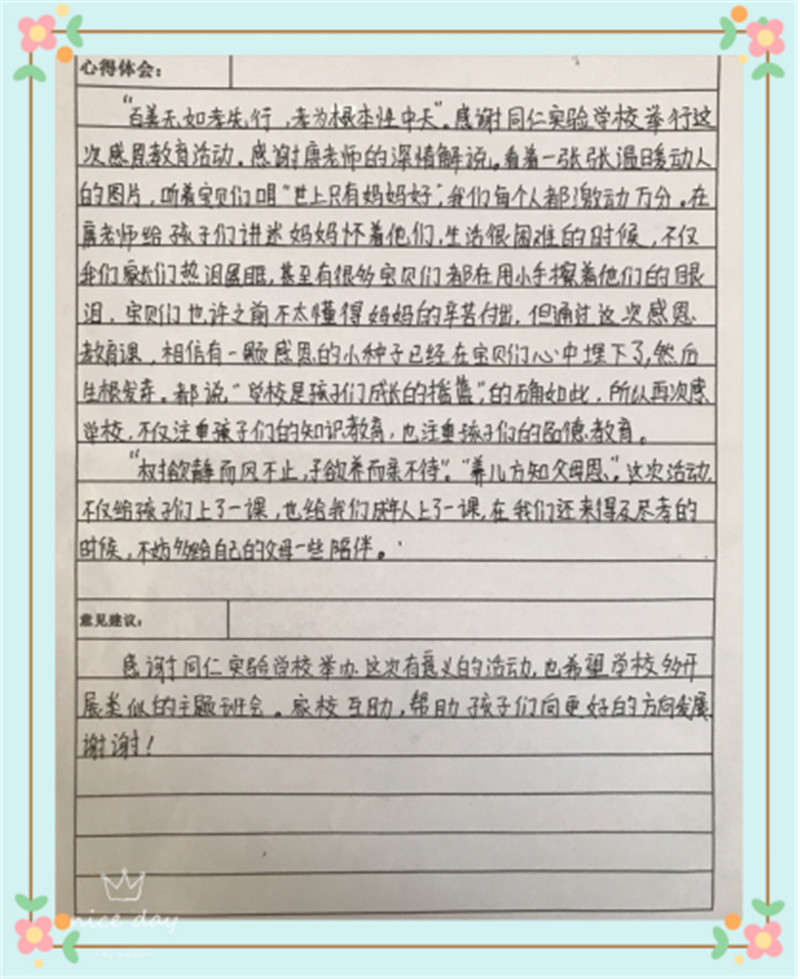 心得体会：
“百善无如孝先行，孝为根本性中天”。感谢同仁实验学校举行这
次感恩教育活动。感谢唐老师的深情解说。看着一张张温暖动人
的图片，听着宝贝们唱“世上只有妈妈好”，我们每个人都激动万分。在
唐老师给孩子们讲述妈妈怀着他们，生活很困难的时候，不仅
我们家长们热泪盈眶，甚至有很多宝贝们都在用小手擦着他们的眼
泪，宝贝们也许之前不太懂得妈妈的辛苦付出，但通过这次感恩
教育课，相信有一颗感恩的小种子已经在宝贝们心中埋下了，然后
生根发芽。都说“学校是孩子们成长的摇篮”，的确如此，所以再次感
学校，不仅注重孩子们的知识教育，也注重孩子们的品德教育。
“树欲静而风不止，子欲养而亲不待”。“养儿方知父母恩”。这次活动，
不仅给孩子们上了一课，也给我们成年人上了一课，在我们还来得及尽孝的
时候，不妨多给自己的父母一些陪伴。
意见建议：
感谢同仁实验学校举办这次有意义的活动，也希望学校多开
展类似的主题班会。家校互助，帮助孩子们向更好的方向发展
谢谢！
nice day